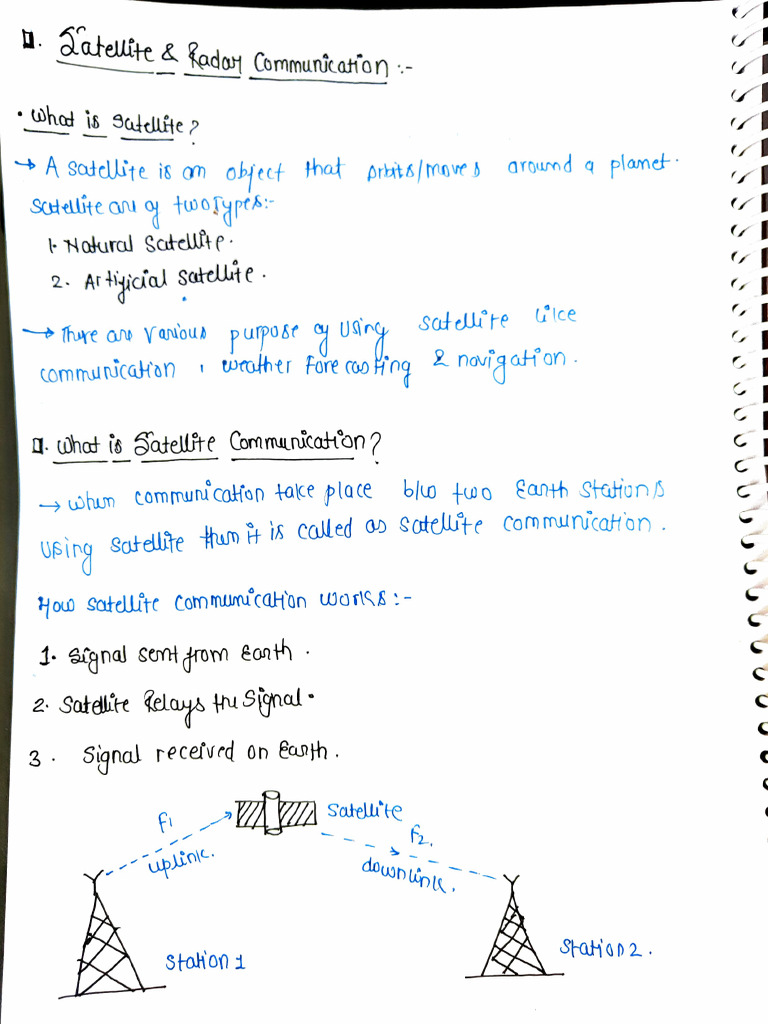 1. Satellite & Radar Communication :-
• What is satellite?
→ A satellite is an object that orbits/moves around a planet.
Satellite are of two Types:-
1. Natural Satellite.
2. Artificial satellite.
→ There are various purpose of using satellite like
communication, weather forecasting & navigation.
1. What is Satellite Communication?
→ when communication take place b/w two Earth stations
using satellite then it is called as satellite communication.
How satellite communication works:-
1. Signal sent from Earth.
2. Satellite Relays the Signal.
3. Signal received on Earth.
f1
satellite
f2.
uplink.
downlink.
Station 1
Station 2.